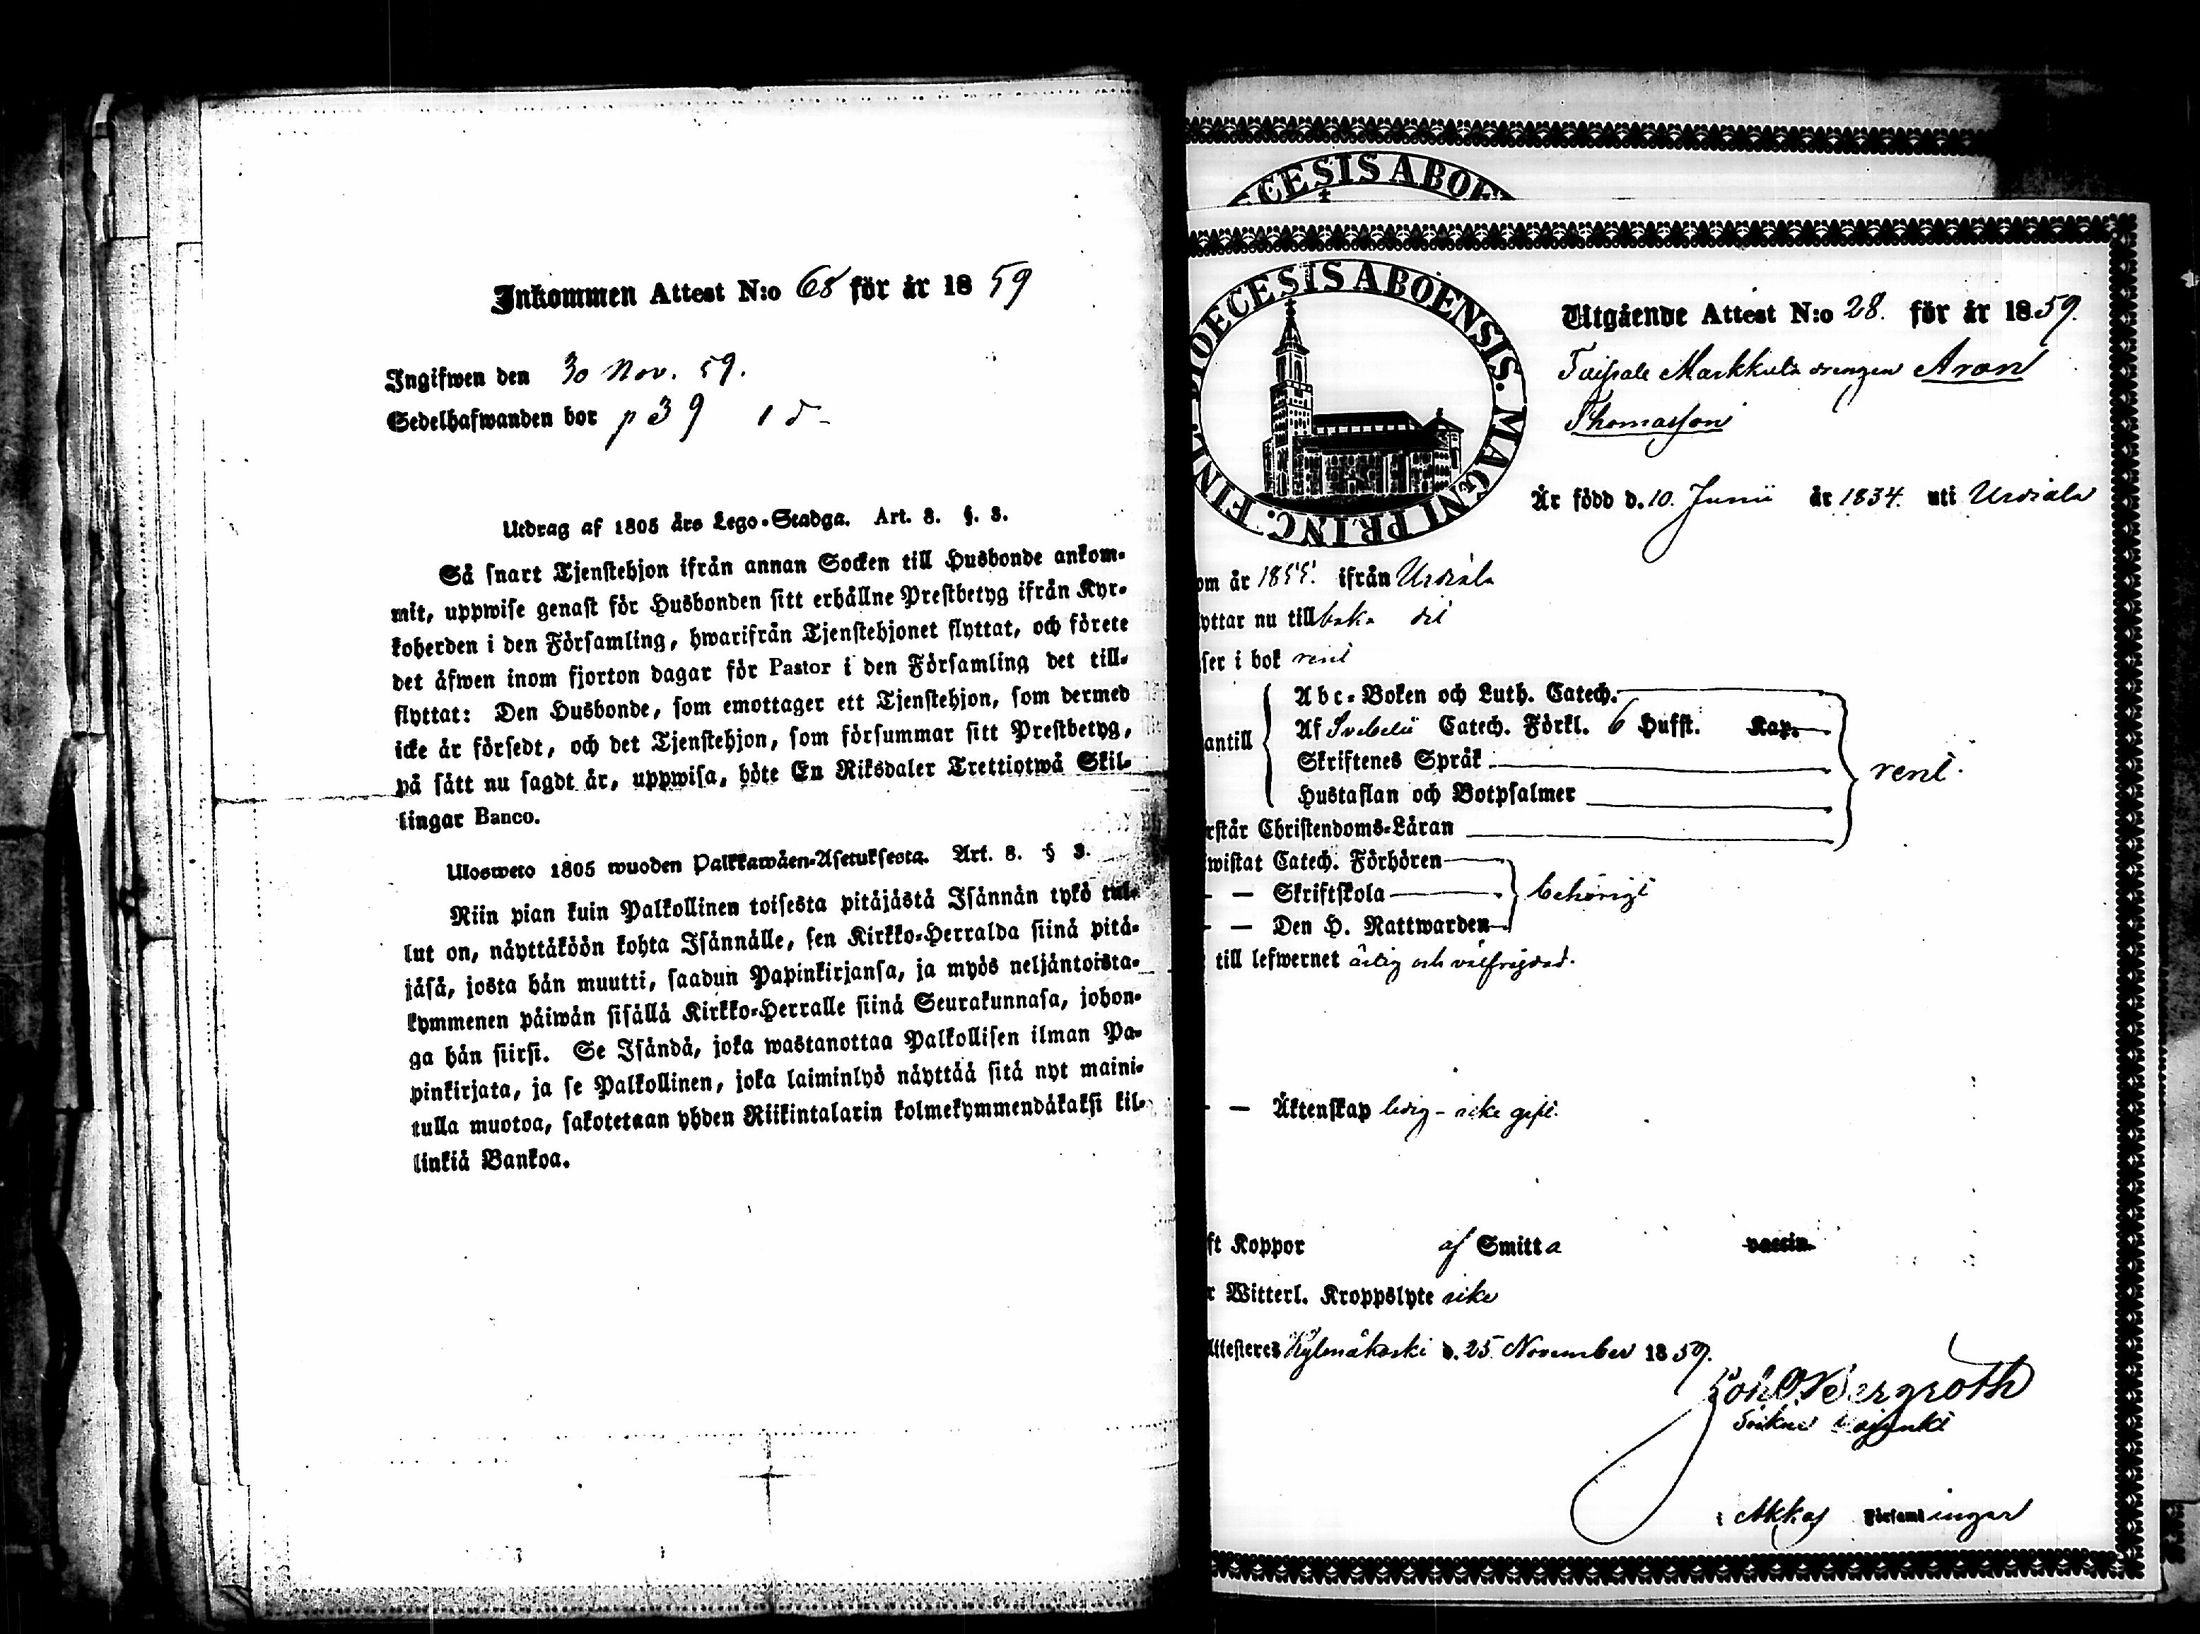 Inkommen Attest N:o 68 för år 1859
Ingifwen den 30 Nov. 59.
Sedelhafwanden bor p 39
Utdrag af 1805 års Lego-Stadga. Art. 8. §. 3.
Så snart Tjenstehjon ifrån annan Socken till Husbonde ankom-
mit, uppwise genast för Husbonden sitt erhållne Prestbetyg ifrån Kyr-
koherden i den Församling, hwarifrån Tjenstehjonet flyttat, och förete
det äfwen inom fjorton dagar för Pastor i den Församling det till-
flyttat: Den Husbonde, som emottager ett Tjenstehjon, som dermed
icke är försedt, och det Tjenstehjon, som försummar sitt Prestbetyg,
på sätt nu sagdt är, uppwisa, böte En Riksdaler Trettiotwå Skil-
lingar Banco.
Ulosweto 1805 wuoden Palkkawäen-Asetuksesta. Art. 8. § 3.
Niin pian kuin Palkollinen toisesta pitäjästä Isännän tykö tul-
lut on, näyttäköön kohta Isännälle, sen Kirkko-Herralda siinä pitä-
jäsä, josta hän muutti, saadun Papinkirjansa, ja myös neljäntoista-
kymmenen päiwän sisällä Kirkko-Herralle siinä Seurakunnasa, johon-
ga hän siirsi. Se Isändä, joka wastanottaa Palkollisen ilman Pa-
pinkirjata, ja se Palkollinen, joka laiminlyö näyttää sitä nyt maini-
tulla muotoa, sakotetaan yhden Riikintalarin kolmekymmendäkaksi kil-
linkiä Bankoa.
CESIS ABOE
DIOECESIS ABOENSIS. MAGNI PRINC. FINL.
Utgående Attest N:o 28. för år 1859.
Taipale Markkula drengen Aron
Thomasson
Är född d. 10. Junii år 1834. uti Urdiala
om år 1855. ifrån Urdiala
yttar nu tillbaka dit
ser i bok rent
antill
Abc-Boken och Luth. Catech.
Af Svebelii Catech. Förkl. 6 Hufst. Kap.
Skriftenes Språk
Hustaflan och Botpsalmer
rent.
rstår Christendoms-Läran
wistat Catech. Förhören
— — Skriftskola
— — Den H. Nattwarden
behörigt
till lefwernet ärlig och välfrejdad.
— — Äktenskap ledig - icke gift.
ft Koppor af Smitta vaccin.
r Witterl. Kroppslyte icke
Attesteres Kylmäkoski d. 25. November 1859.
Joh. O. Bergroth
i Akkas Församlingar